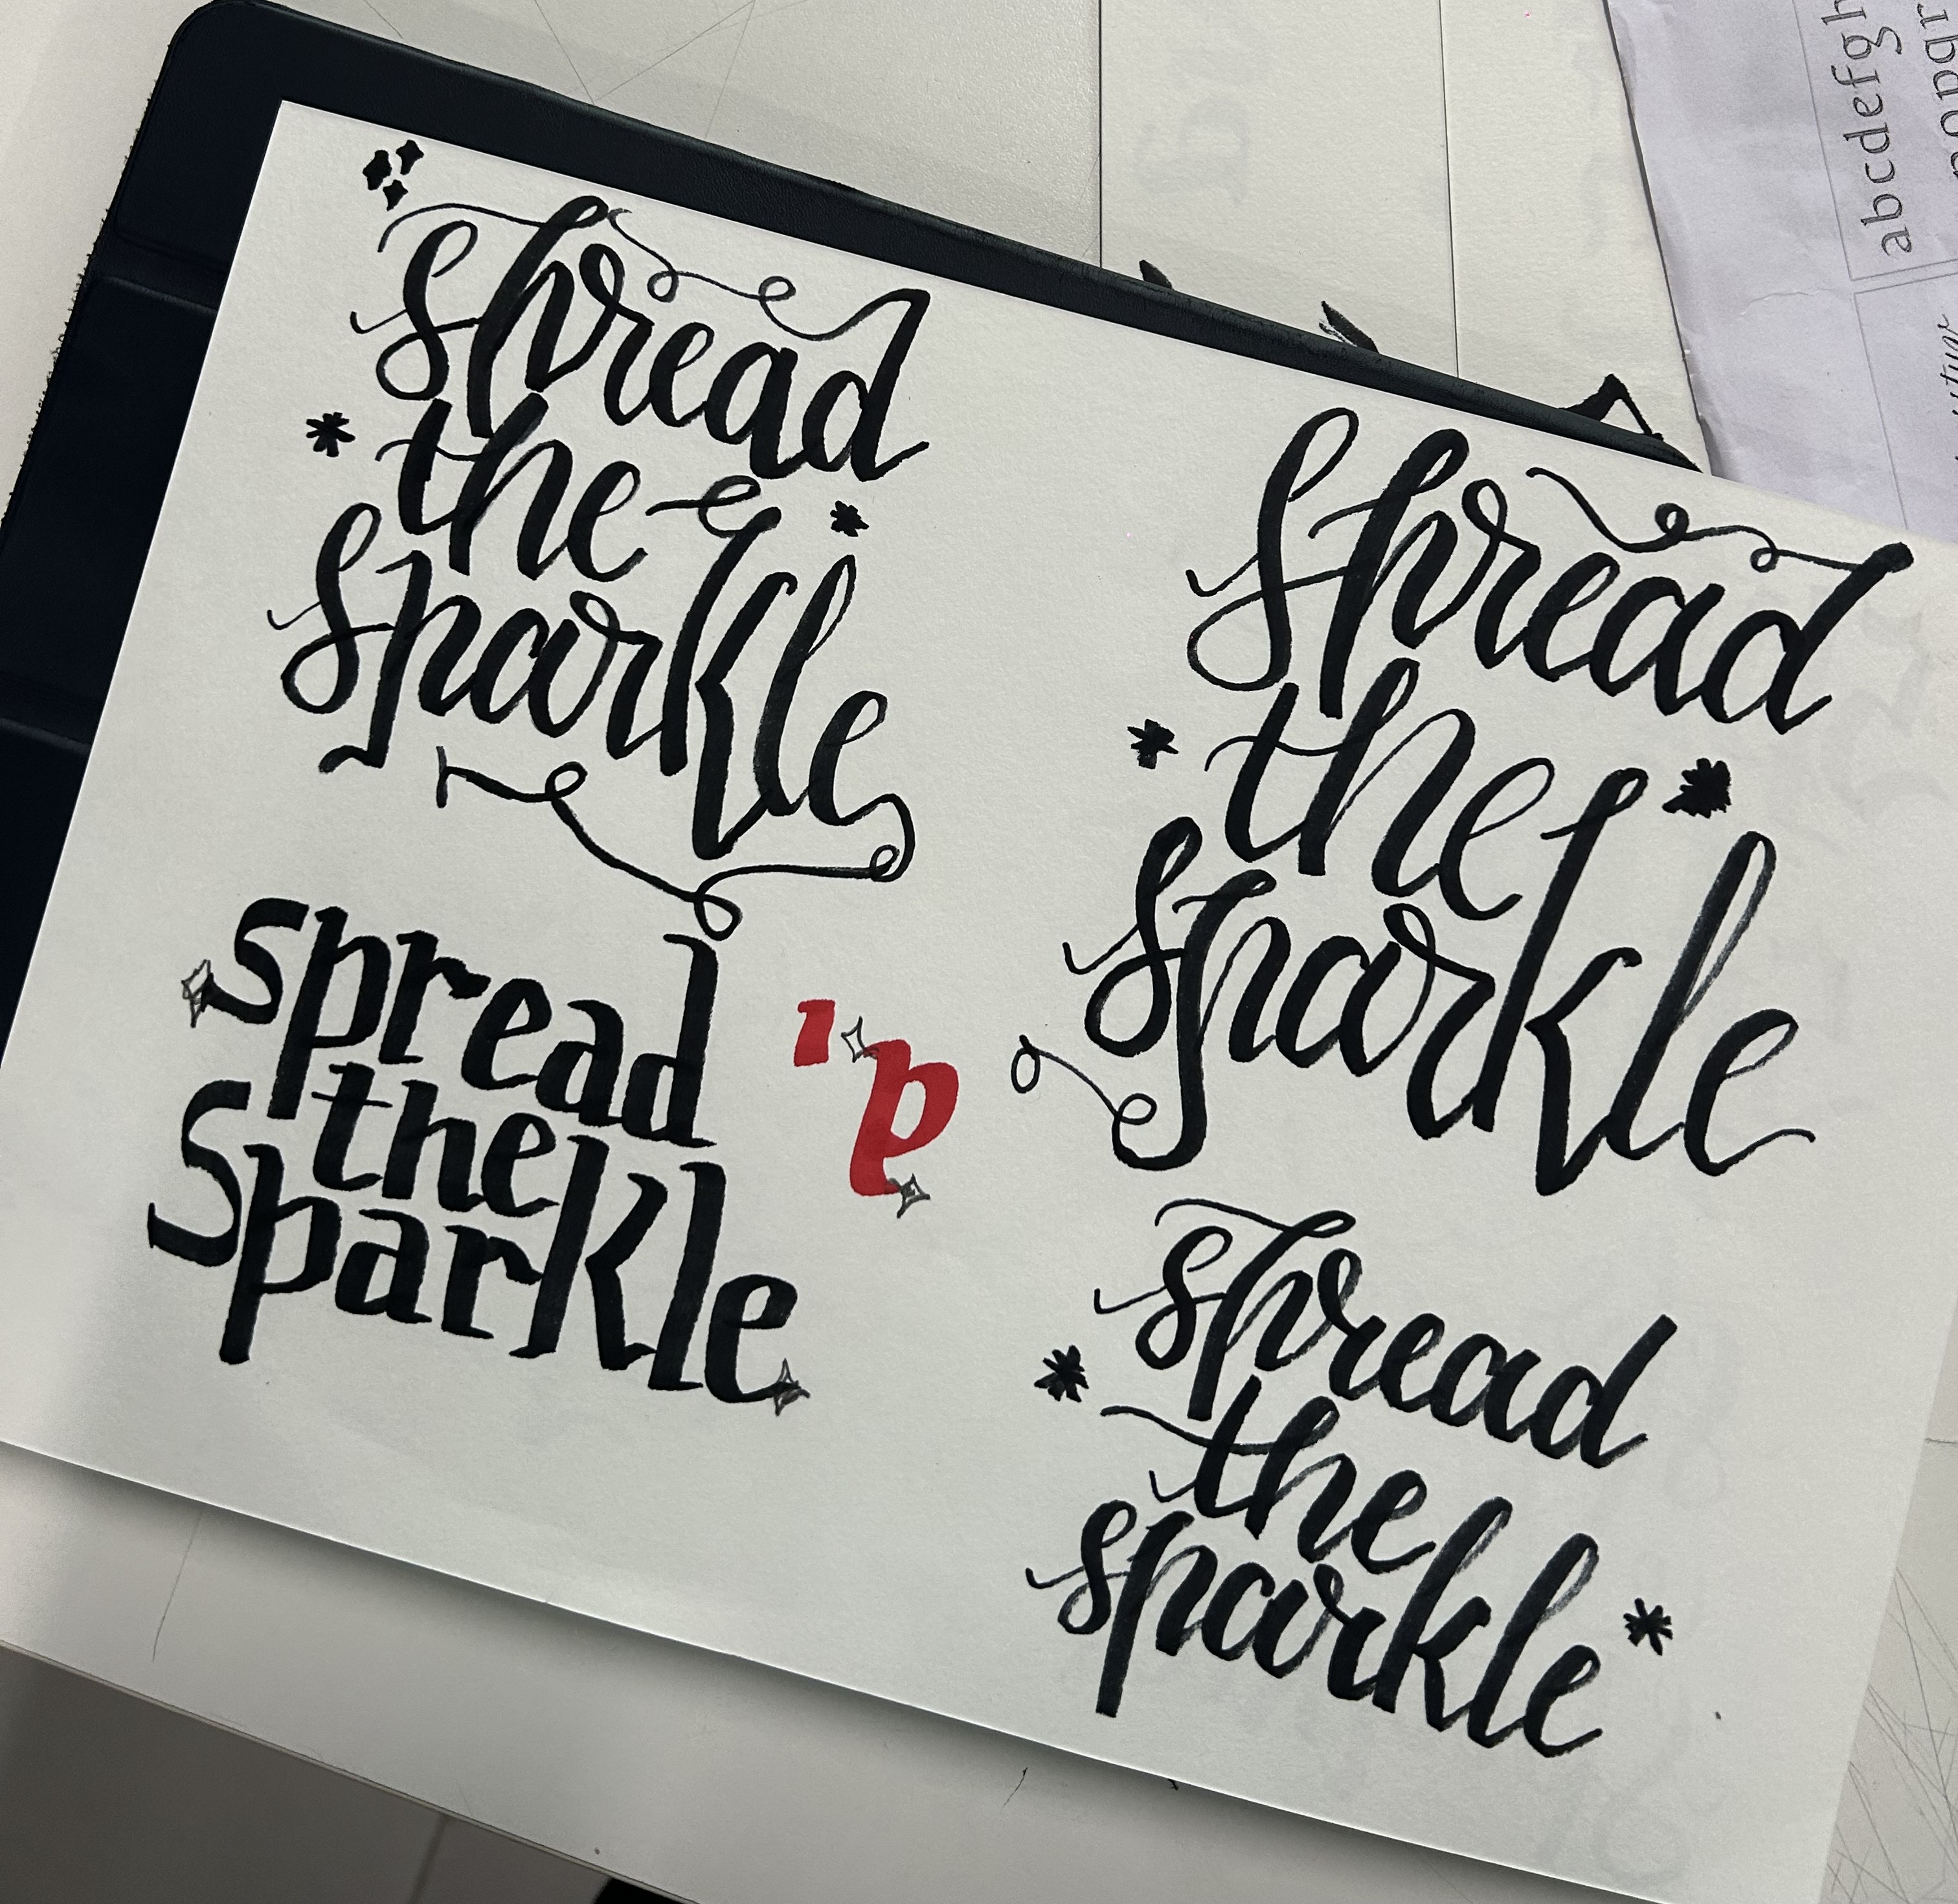 spread
the
sparkle
spread
the
sparkle
spread
the
sparkle
spread
the
sparkle
abcdefgh